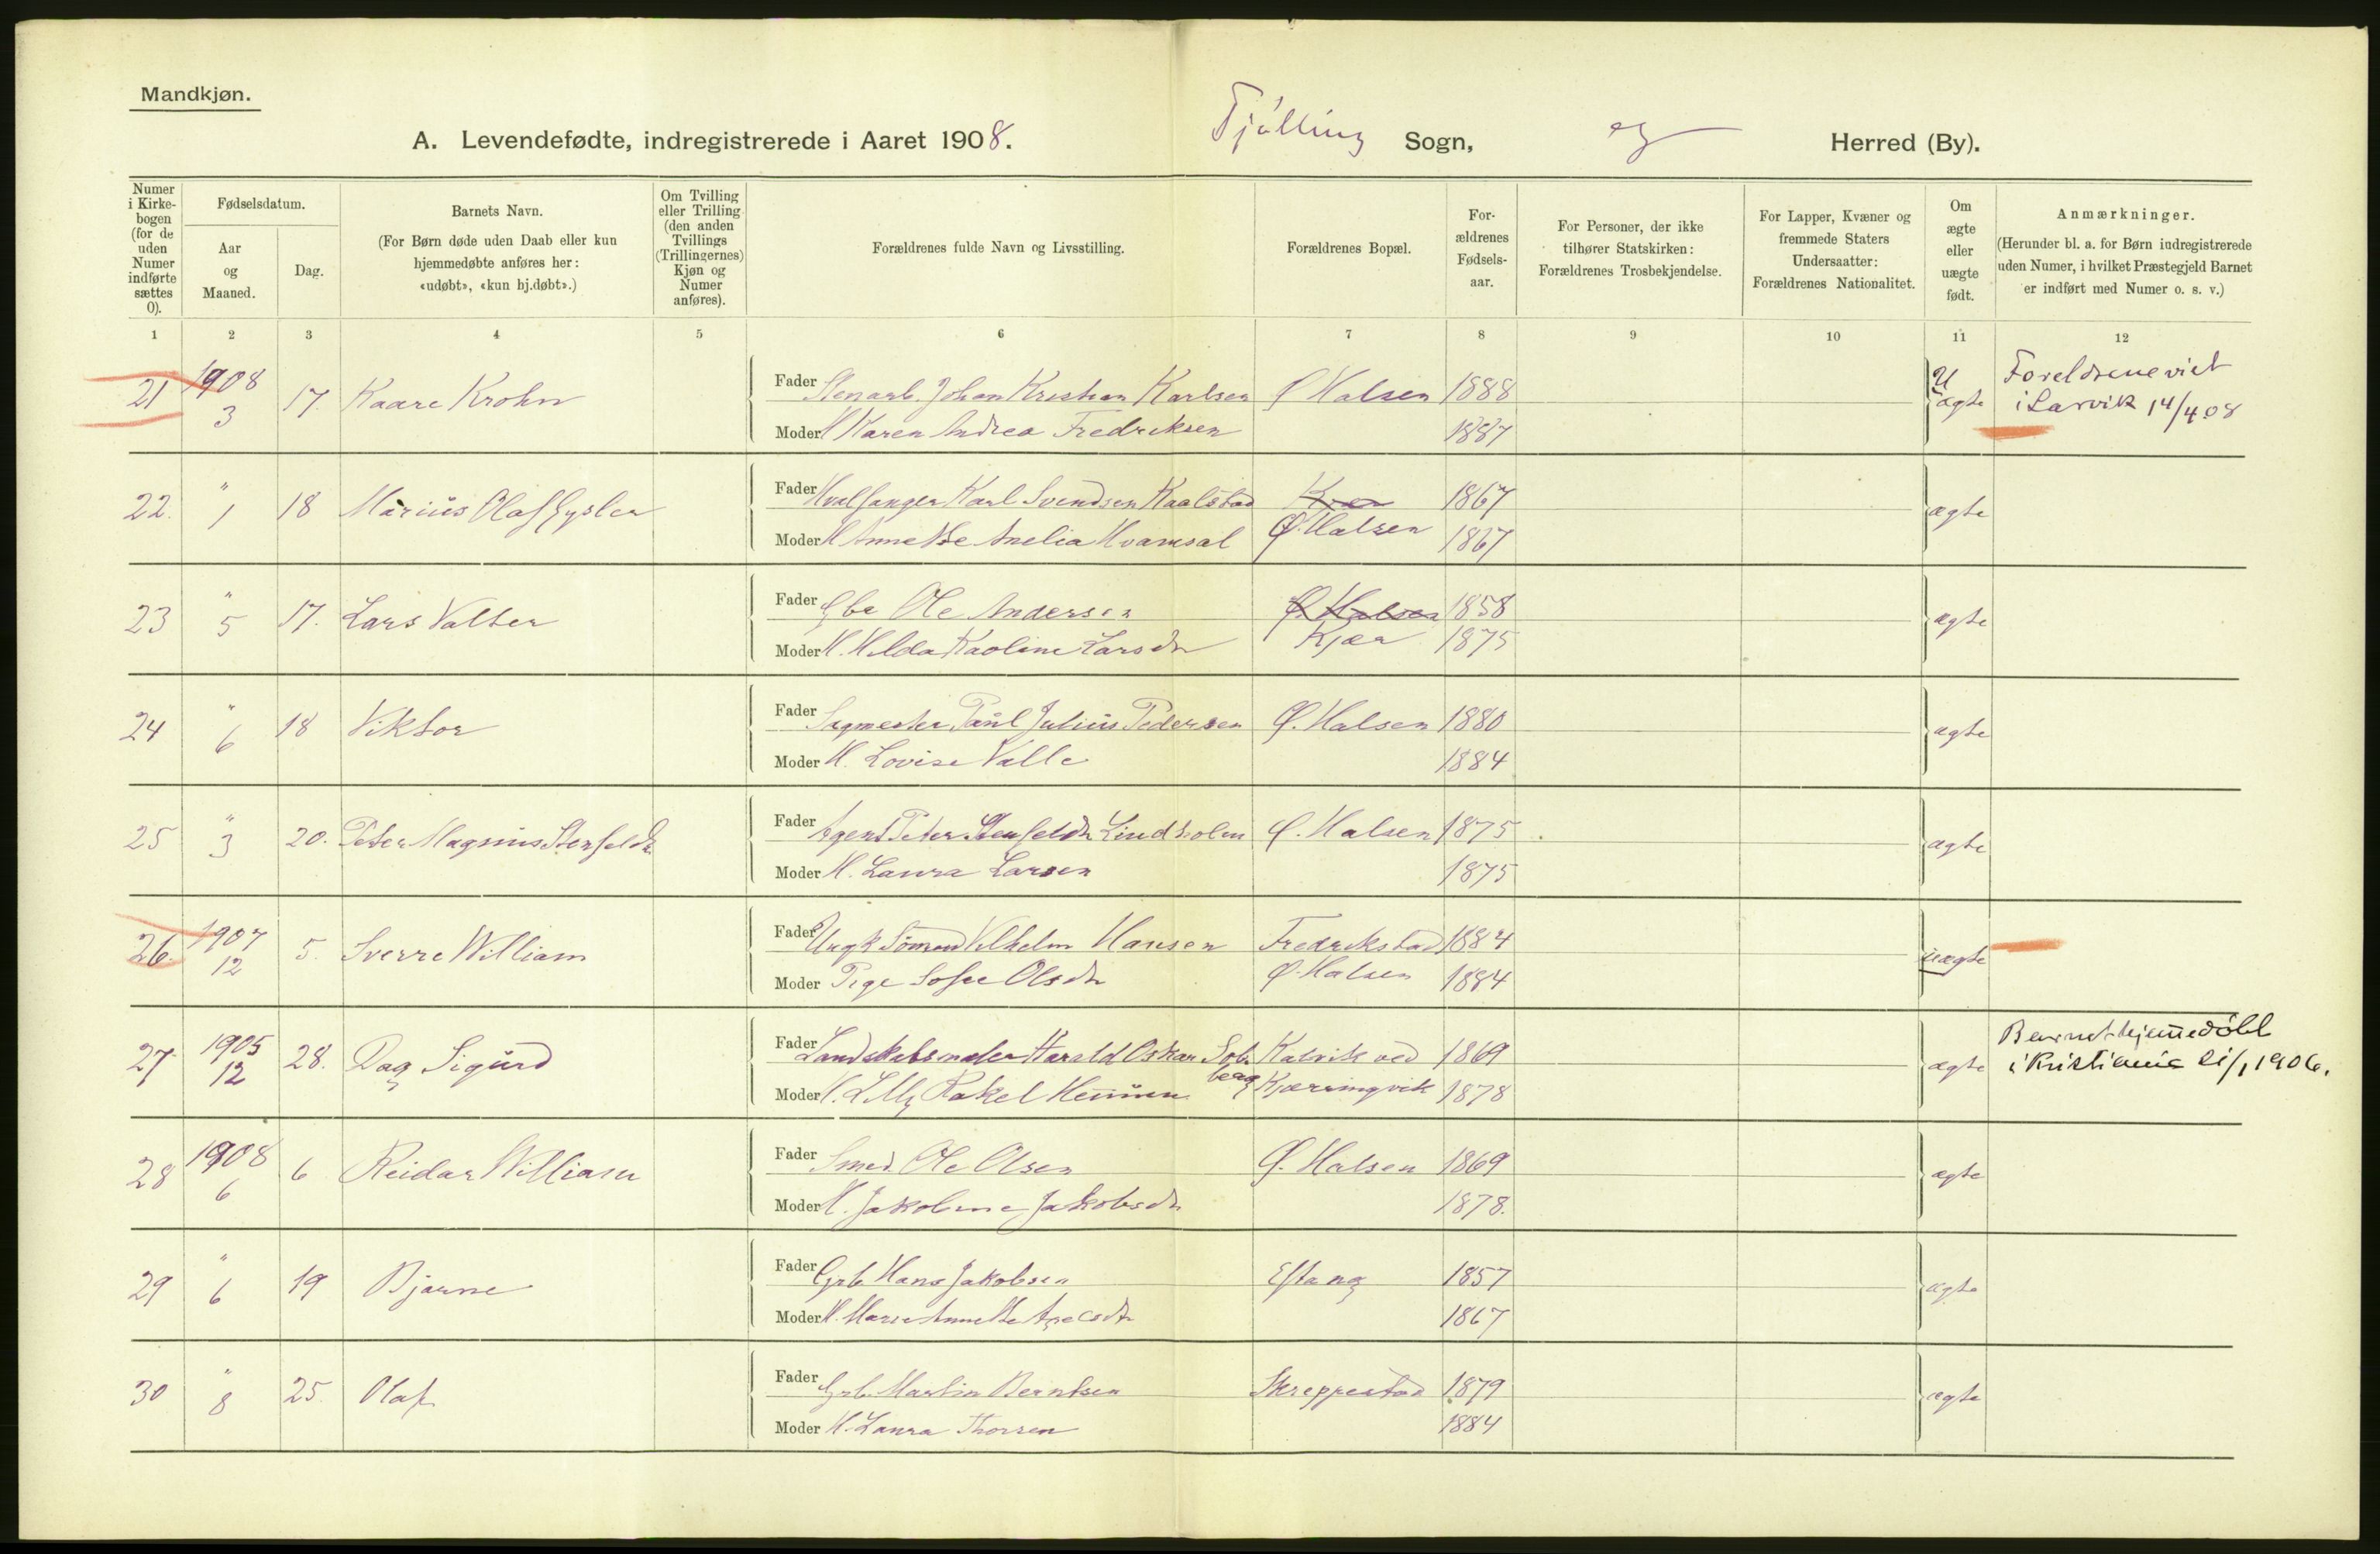 Mandkjøn.
A. Levendefødte, indregistrerede i Aaret 1908.
Tjølling Sogn, og Herred (By).
Numer i Kirkebogen (for de uden Numer indførte sættes 0).
Fødselsdatum.
Aar og Maaned.
Dag.
Barnets Navn.
(For Børn døde uden Daab eller kun hjemmedøbte anføres her: «udøbt», «kun hj.døbt».)
Om Tvilling eller Trilling (den anden Tvillings (Trillingernes) Kjøn og Numer anføres).
Forældrenes fulde Navn og Livsstilling.
Forældrenes Bopæl.
Forældrenes Fødselsaar.
For Personer, der ikke tilhører Statskirken: Forældrenes Trosbekjendelse.
For Lapper, Kvæner og fremmede Staters Undersaatter: Forældrenes Nationalitet.
Om ægte eller uægte født.
Anmærkninger.
(Herunder bl. a. for Børn indregistrerede uden Numer, i hvilket Præstegjeld Barnet er indført med Numer o. s. v.)
1 2 3 4 5 6 7 8 9 10 11 12
21 1908 3 17. Kaare Krohn Fader Stenarb. Johan Kristian Karlsen Ø Halsen 1888 U ægte Foreldrene viet i Larvik 14/4 08
Moder H Karen Andrea Fredriksen 1887
22. " 1 18 Marius Olaf Gysler Fader Hvalfanger Karl Svendsen Kaalstad Kjær 1867 ægte
Moder H Annette Amelia Hvamsal Ø. Halsen 1867
23 " 5 17. Lars Valter Fader Gbr Ole Andersen Ø. Halsen 1858 ægte
Moder H. Hilda Karoline Larsdr Kjær 1875
24 " 6 18 Viktor Fader Sagmester Paul Julius Pedersen Ø. Halsen 1880 ægte
Moder H. Lovise Valle 1884
25 " 3 20. Peter Magnus Stenfeldt Fader Agent Peter Stenfeldt Lindholm Ø. Halsen 1875 ægte
Moder H. Laura Larsen 1875
26. 1907 12 5. Sverre William Fader Ungk Sömand Vilhelm Hansen Fredrikstad 1884 uægte
Moder Pige Sofie Olsdr Ø. Halsen 1884
27 1905 12 28. Dag Sigurd Fader Landskabsmaler Harald Oskar Sohlberg Kalvik ved 1869 ægte Barnet hjemmedøbt i Kristiania 21/1 1906.
Moder H. Lilly Rakel Hennum Kjærringvik 1878
28 1908 6 6 Reidar William Fader Smed Ole Olsen Ø. Halsen 1869 ægte
Moder H. Jakobine Jakobsdr 1878.
29 " 6 19 Bjarne Fader Grb. Hans Jakobsen Eftang 1857 ægte
Moder H. Marie Annette 1867
30 " 8 25. Olaf Fader Grb. Martin Berntsen Skreppestad 1879 ægte
Moder H. Laura Thorsen 1884